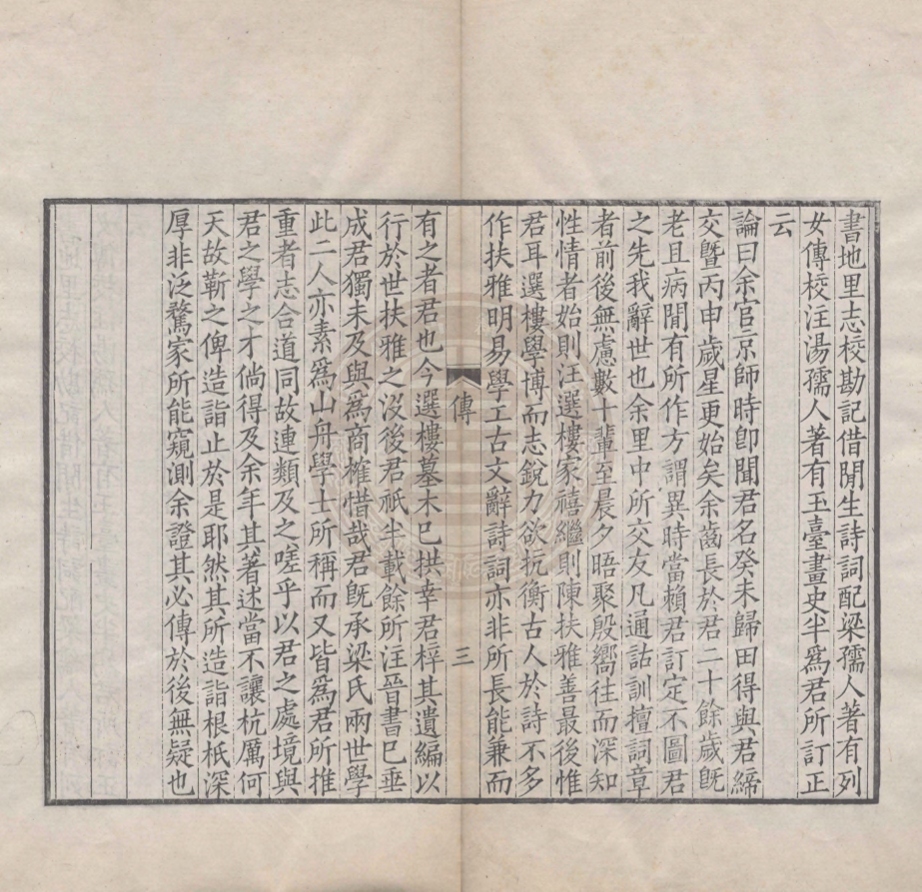 書地里志校勘記借閒生詩詞配梁孺人著有列
女傳校注湯孺人著有玉臺畫史半爲君所訂正
云
論曰余官京師時卽聞君名癸未歸田得與君締
交曁丙申歲星更始矣余齒長於君二十餘歲旣
老且病閒有所作方謂異時當賴君訂定不圖君
之先我辭世也余里中所交友凡通詁訓擅詞章
者前後無慮數十輩至晨夕晤聚殷嚮往而深知
性情者始則汪選樓家禧繼則陳扶雅善最後惟
君耳選樓學博而志銳力欲抗衡古人於詩不多
作扶雅明易學工古文辭詩詞亦非所長能兼而
傳
三
有之者君也今選樓墓木已拱幸君梓其遺編以
行於世扶雅之沒後君祇半載餘所注晉書已垂
成君獨未及與爲商榷惜哉君旣承梁氏兩世學
此二人亦素爲山舟學士所稱而又皆爲君所推
重者志合道同故連類及之嗟乎以君之處境與
君之學之才倘得及余年其著述當不讓杭厲何
天故靳之俾造詣止於是耶然其所造詣根柢深
厚非泛騖家所能窺測余證其必傳於後無疑也